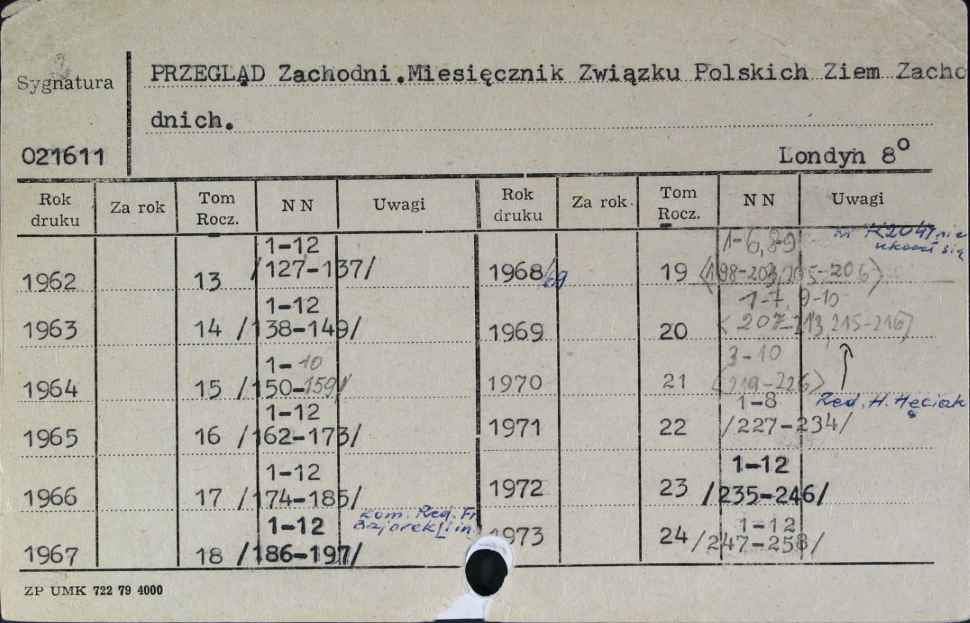 Sygnatura
PRZEGLĄD Zachodni.Miesięcznik Związku Polskich Ziem Zacho
dnich.
021611
Londyn 8°
Rok druku Za rok Tom Rocz. NN Uwagi Rok druku Za rok. Tom Rocz. NN Uwagi
1962 13 1-12 /127-137/
1963 14 1-12 /138-149/
1964 15 1-10 /150-159/
1965 16 1-12 /162-173/
1966 17 1-12 /174-185/
1967 18 1-12 /186-197/ kom. Red. Fr
1968/69 19 1-6,8-9 nr K2047 nie ukazał się
1969 20 1-7, 9-10 <207-213,215-216>
1970 21 3-10 <219-226>
Red. H. Hęciak
1971 22 1-8 /227-234/
1972 23 1-12 /235-246/
1973 24 1-12 /247-258/
ZP UMK 722 79 4000